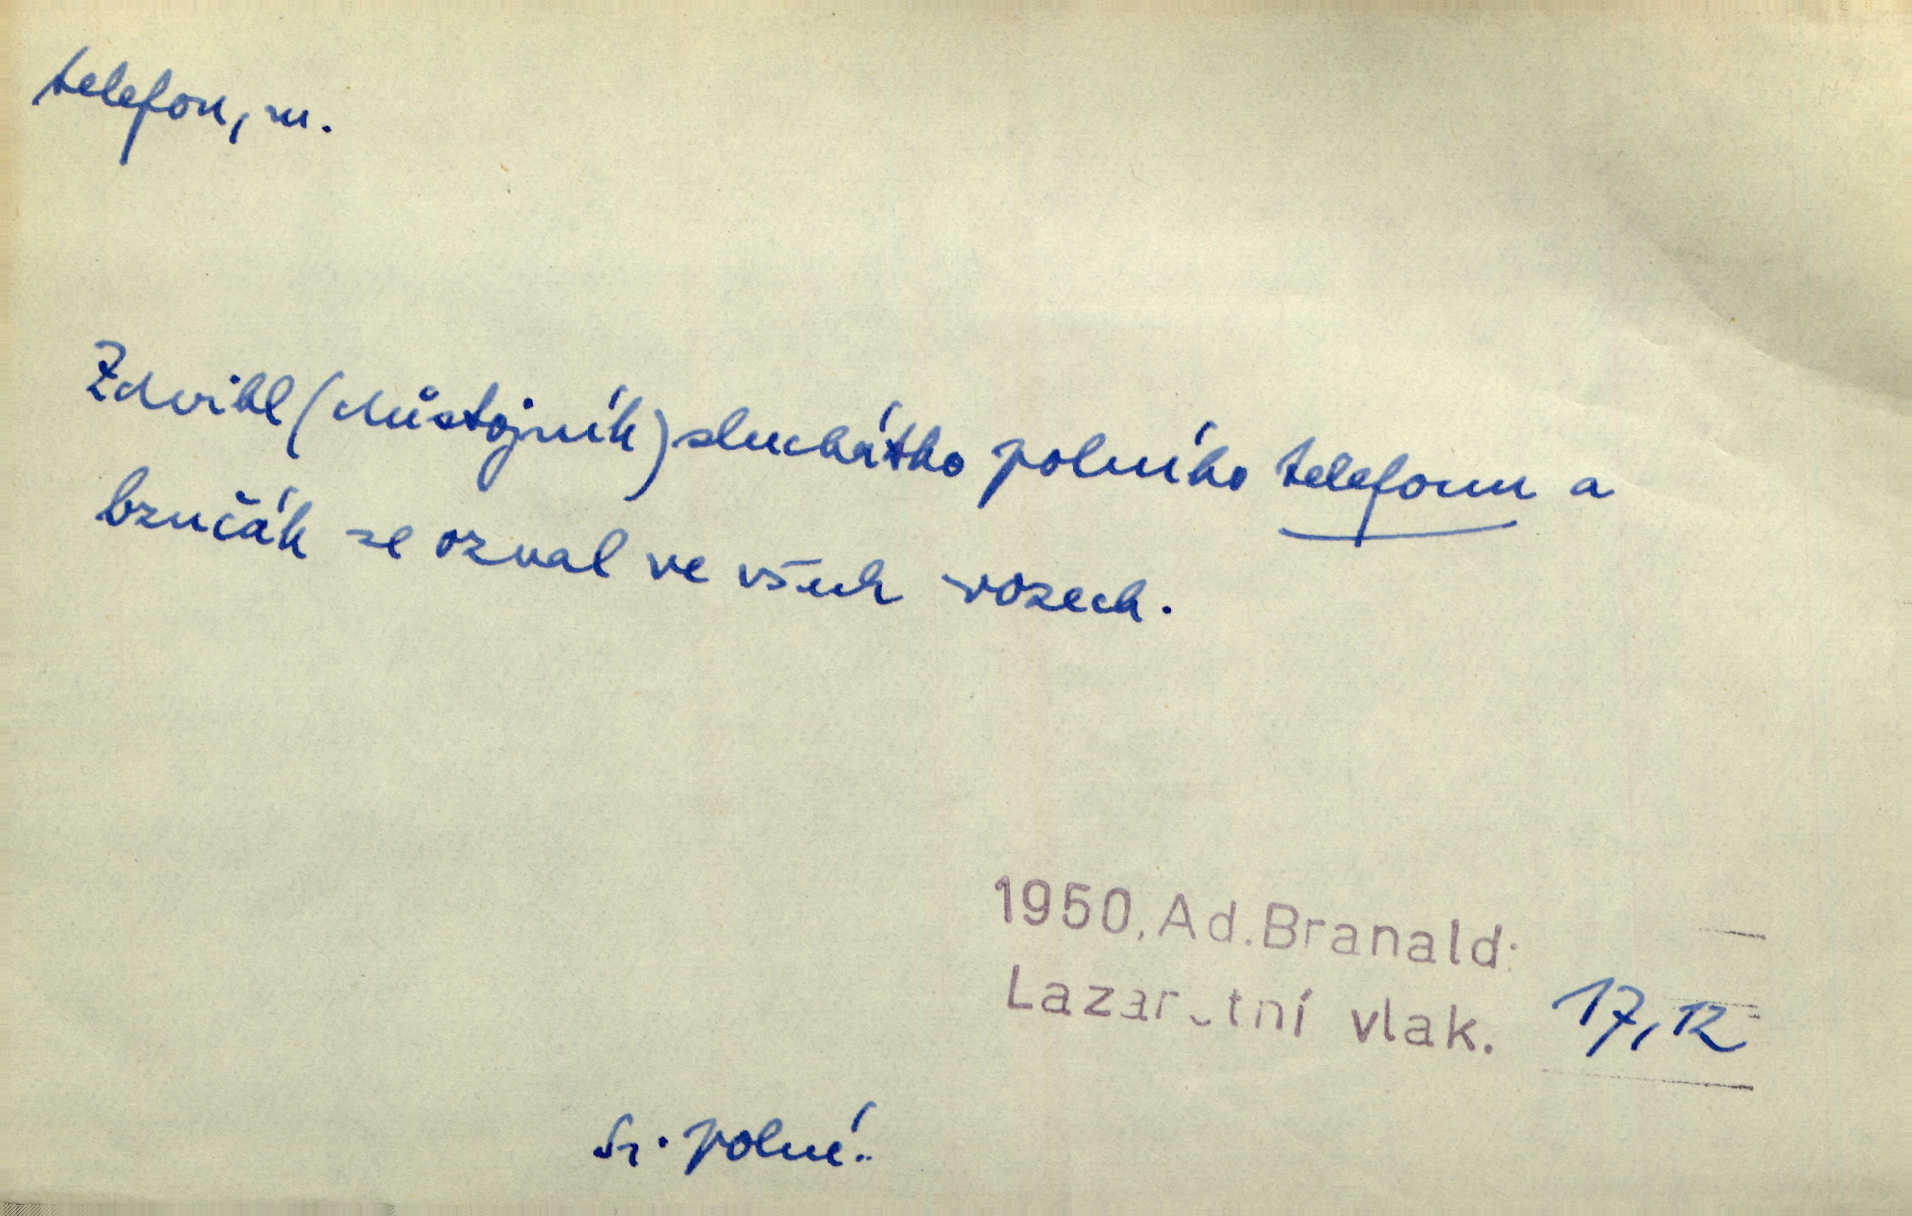 telefon, m.
Zdvihl (důstojník) sluchátko polního telefonu a
bzučák se ozval ve všech vozech.
1950, Ad. Branald:
Lazaretní vlak. 17,12
Sr. polní.